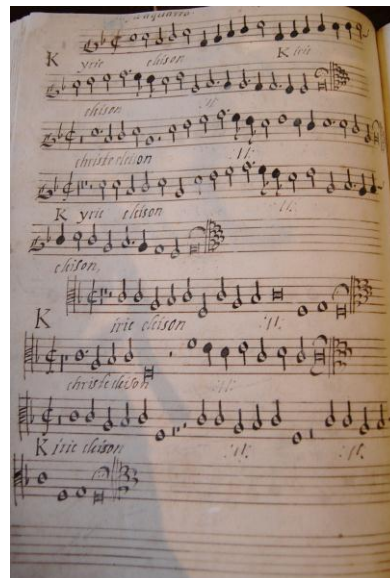 K yrie eleison Kirie
eleison .II.
christe eleison .II.
K yrie eleison .II.
eleison,
K irie eleison .II.
christe eleison .II.
K irie eleison .II. .II.